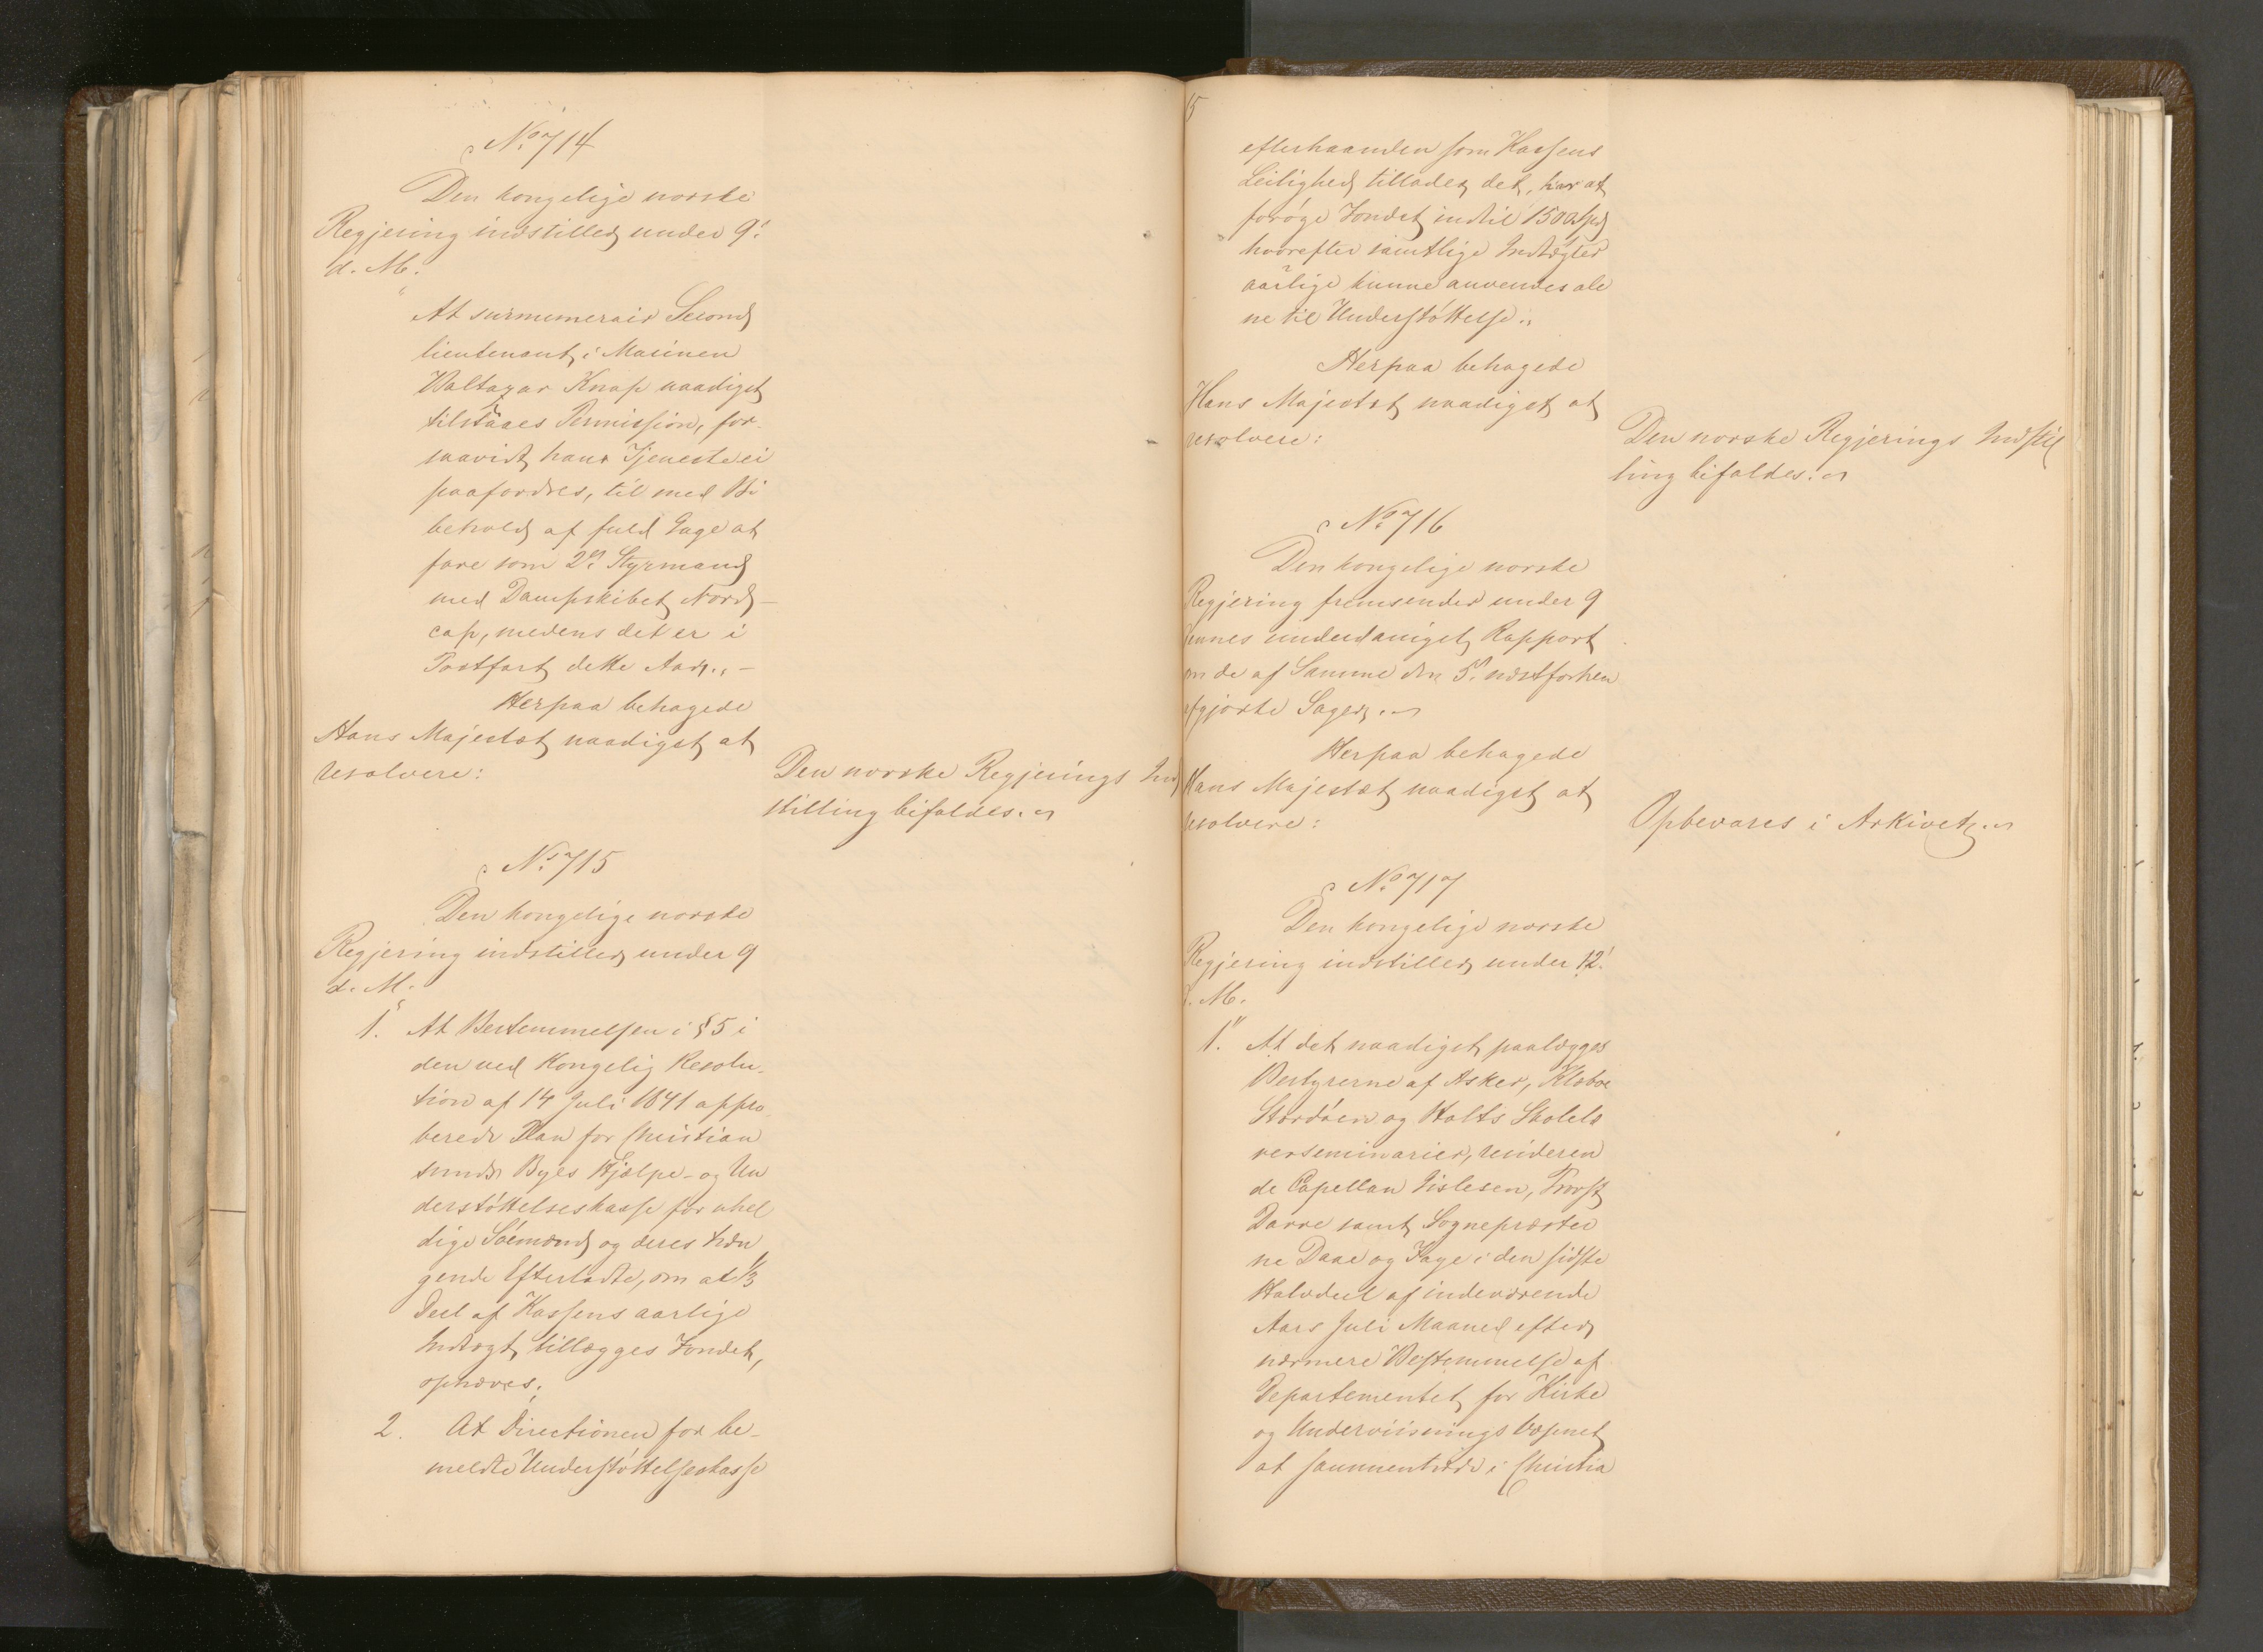 No 714
Den kongelige norske
Regjering indstiller under 9.
d. M.
"
At surnumerair Second
lieutenant i Marinen
Waltazar Knap naadigst
tilstaaes Permission, for-
saavidt hans Tjeneste ei
paafordres, til med Bi
behold af fuld Gage at
fare som 2den Styrmand
med Dampskibet Nord-
cap, medens det er i
Postfart dette Aar. -
Herpaa behagede
Hans Majestæt naadigst at
resolvere:
Den norske Regjerings Ind
stilling bifaldes.
No 715
Den kongelige norske
Regjering indstiller under 9
d. M.
1. At Bestemmelsen i § 5 i
den ved Kongelig Resolu-
tion af 14 Juli 1841 appro-
berede Plan for Christian
sunds Byes Hjælpe- og Un
derstøttelseskasse for uhel
dige Sømænd og deres træn
gende Efterladte, om at 1/3
Deel af Kassens aarlige
Indtægt tillægges Fondet,
ophæves;
2. At Directionen for be-
meldte Understøttelseskasse
15
efterhaanden som Kassens
Leilighed tillader det, har at
forøge Fondet indtil 1500 Spd
hvorefter samtlige Indtægter
aarlige kunne anvendes ale
ne til Understøttelse.
Herpaa behagede
Hans Majestæt naadigst at
resolvere:
Den norske Regjerings Indstil
ling bifaldes.
No 716
Den kongelige norske
Regjering fremsender under 9
dennes underdanigst Rapport
om de af Samme den 5. næstforhen
afgjorte Sager.
Herpaa behagede
Hans Majestæt naadigst at
resolvere:
Opbevares i Arkivet.
No 717
Den kongelige norske
Regjering indstiller under 12.
d. M.
1." At det naadigst paalægges
Bestyrerne af Asker, Klæboe
Stordøen og Holts Skolelæ
rerseminarier, residerende
Capellan Gislesen, Provst
Darre samt Sognepræster
ne Daae og Faye i den sidste
Halvdeel af indeværende
Aars Juli Maaned efter
nærmere Bestemmelse af
Departementet for Kirke
og Underviisningsvæsenet
at sammentræde i Christia